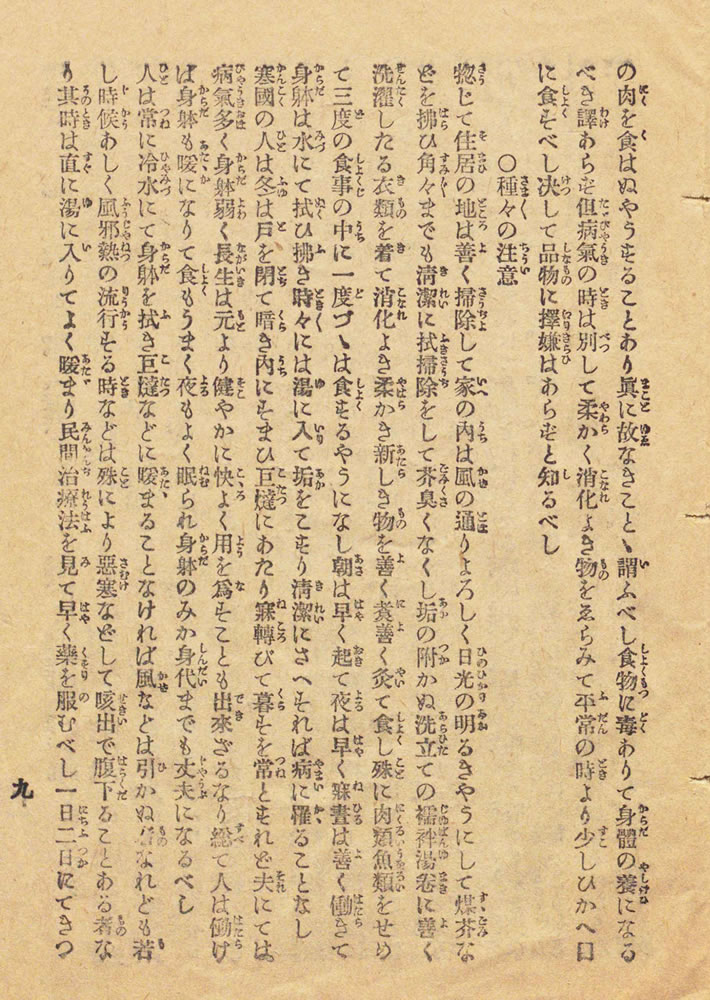 の肉を食はぬやうすることあり眞に故なきことゝ謂ふべし食物に毒ありて身體の養になる
べき譯あらず但病氣の時は別して柔かく消化よき物をゑらみて平常の時より少しひかへ目
に食すべし决して品物に擇嫌はあらずと知るべし
〇種々の注意
惣じて住居の地は善く掃除して家の内は風の通りよろしく日光の明るきやうにして煤芥な
どを拂ひ角々までも清潔に拭掃除をして芥臭くなくし垢の附かぬ洗立ての襦袢湯卷に善く
洗濯したる衣類を着て消化よき柔かき新しき物を善く煑善く灸て食し殊に肉類魚類をせめ
て三度の食事の中に一度づゝは食するやうになし朝は早く起て夜は早く寐晝は善く働きて
身躰は水にて拭ひ拂き時々には湯に入て垢をこすり清潔にさへすれば病に罹ることなし
寒國の人は冬は戸を閉て暗き内にすまひ巨燵にあたり寐轉びて暮すを常とすれど夫にては
病氣多く身躰弱く長生は元より健やかに快よく用を爲すことも出來ざるなり總て人は働け
ば身躰も暖になりて食もうまく夜もよく眠られ身躰のみか身代までも丈夫になるべし
人は常に冷水にて身躰を拭き巨燵などに暖まることなければ風などは引かぬ者なれども若
し時候あしく風邪熱の流行する時などは殊により惡寒などして咳出で腹下ることある者な
り其時は直に湯に入りてよく暖まり民間治療法を見て早く藥を服むべし一日二日にてきつ
九